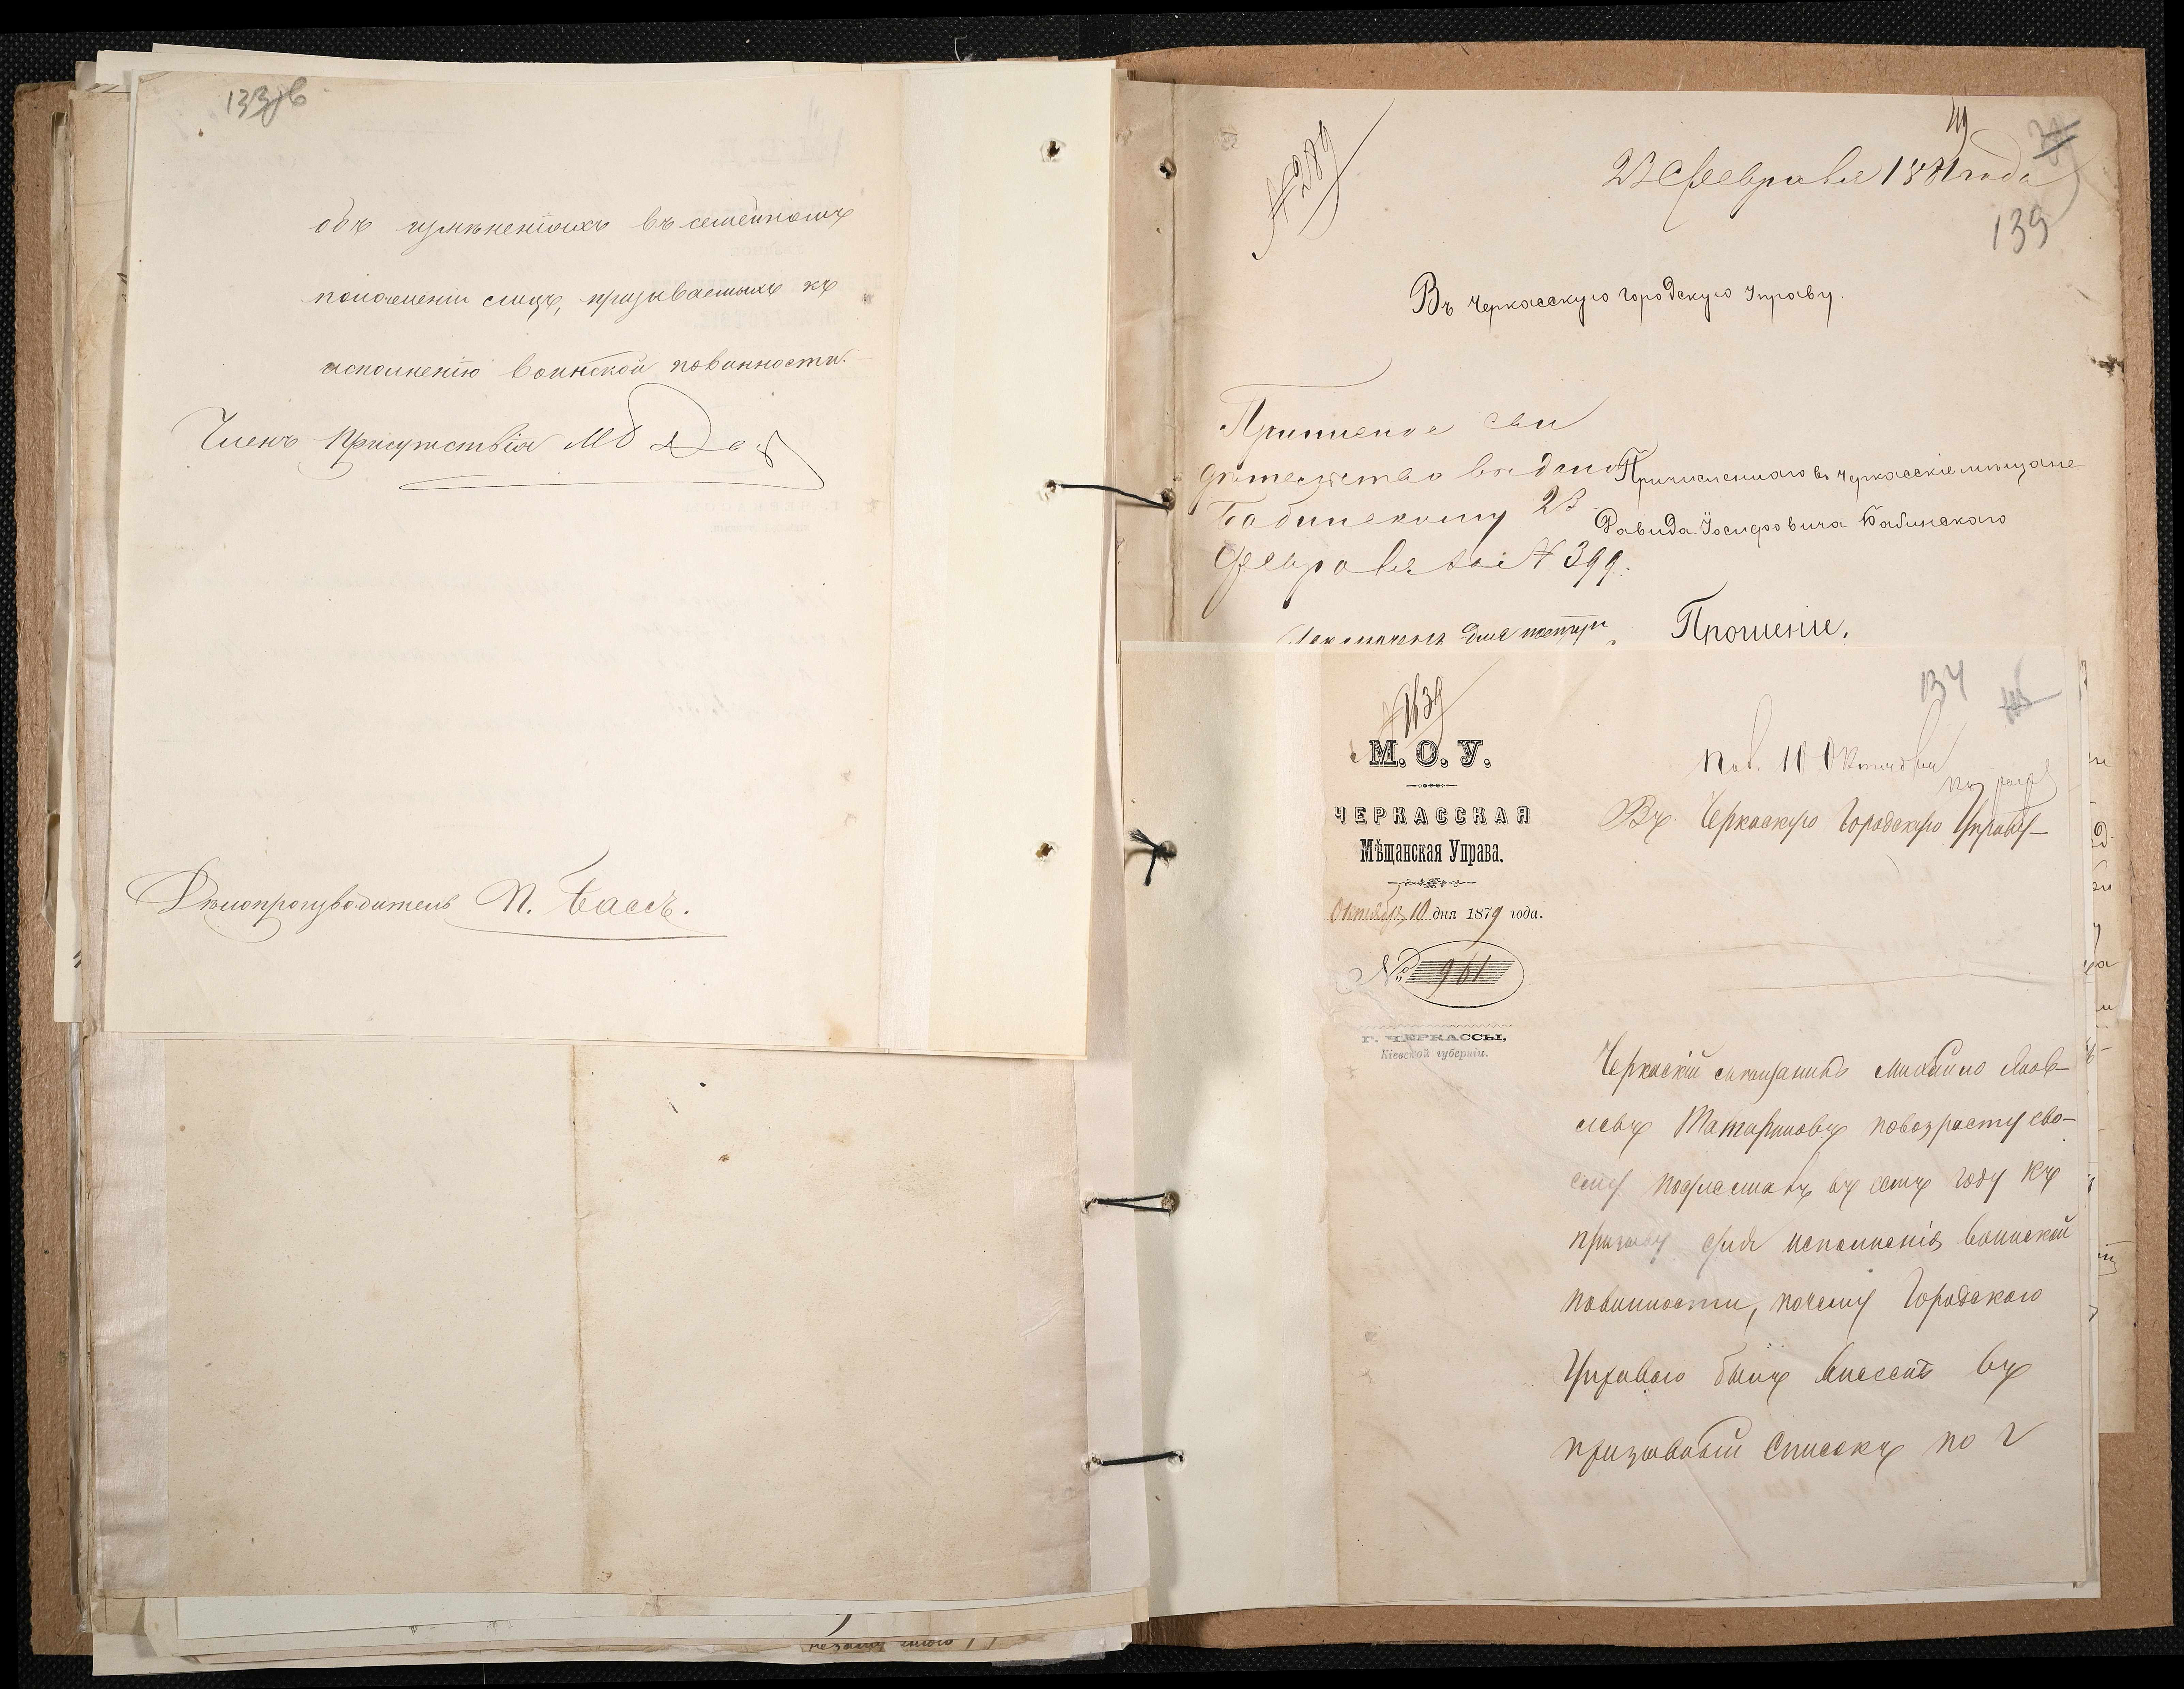 133об
объ измѣненіяхъ въ семейномъ
положеніи лицъ, призываемыхъ къ
исполненію воинской повинности.
Членъ Присутствія
Дѣлопроизводитель П. Бассъ.
№ 289
23 Февраля 1881 года
139
Въ Черкасскую городскую Управу.
Приписное сви
дѣтельство выдано
Бабинскому 23
Февраля № 399.
Причисленнаго въ Черкасскіе мѣщане
Давида Іосифовича Бабинскаго
Прошеніе.
134
№ 1639
М. О. У.
ЧЕРКАССКАЯ
Мѣщанская Управа.
Октября 10 дня 1879 года.
№ 961
Г. ЧЕРКАССЫ,
Кіевской губерніи.
Пол. 10 Октября
Въ Черкаскую Городскую Управу
Черкаскій мѣщанинъ Михайло Яков-
левъ Татариновъ по возрасту сво-
ему подлежитъ въ семъ году къ
призыву для исполненія воинской
повинности, почему Городскою
Управою былъ внесенъ въ
призывный списокъ по 2